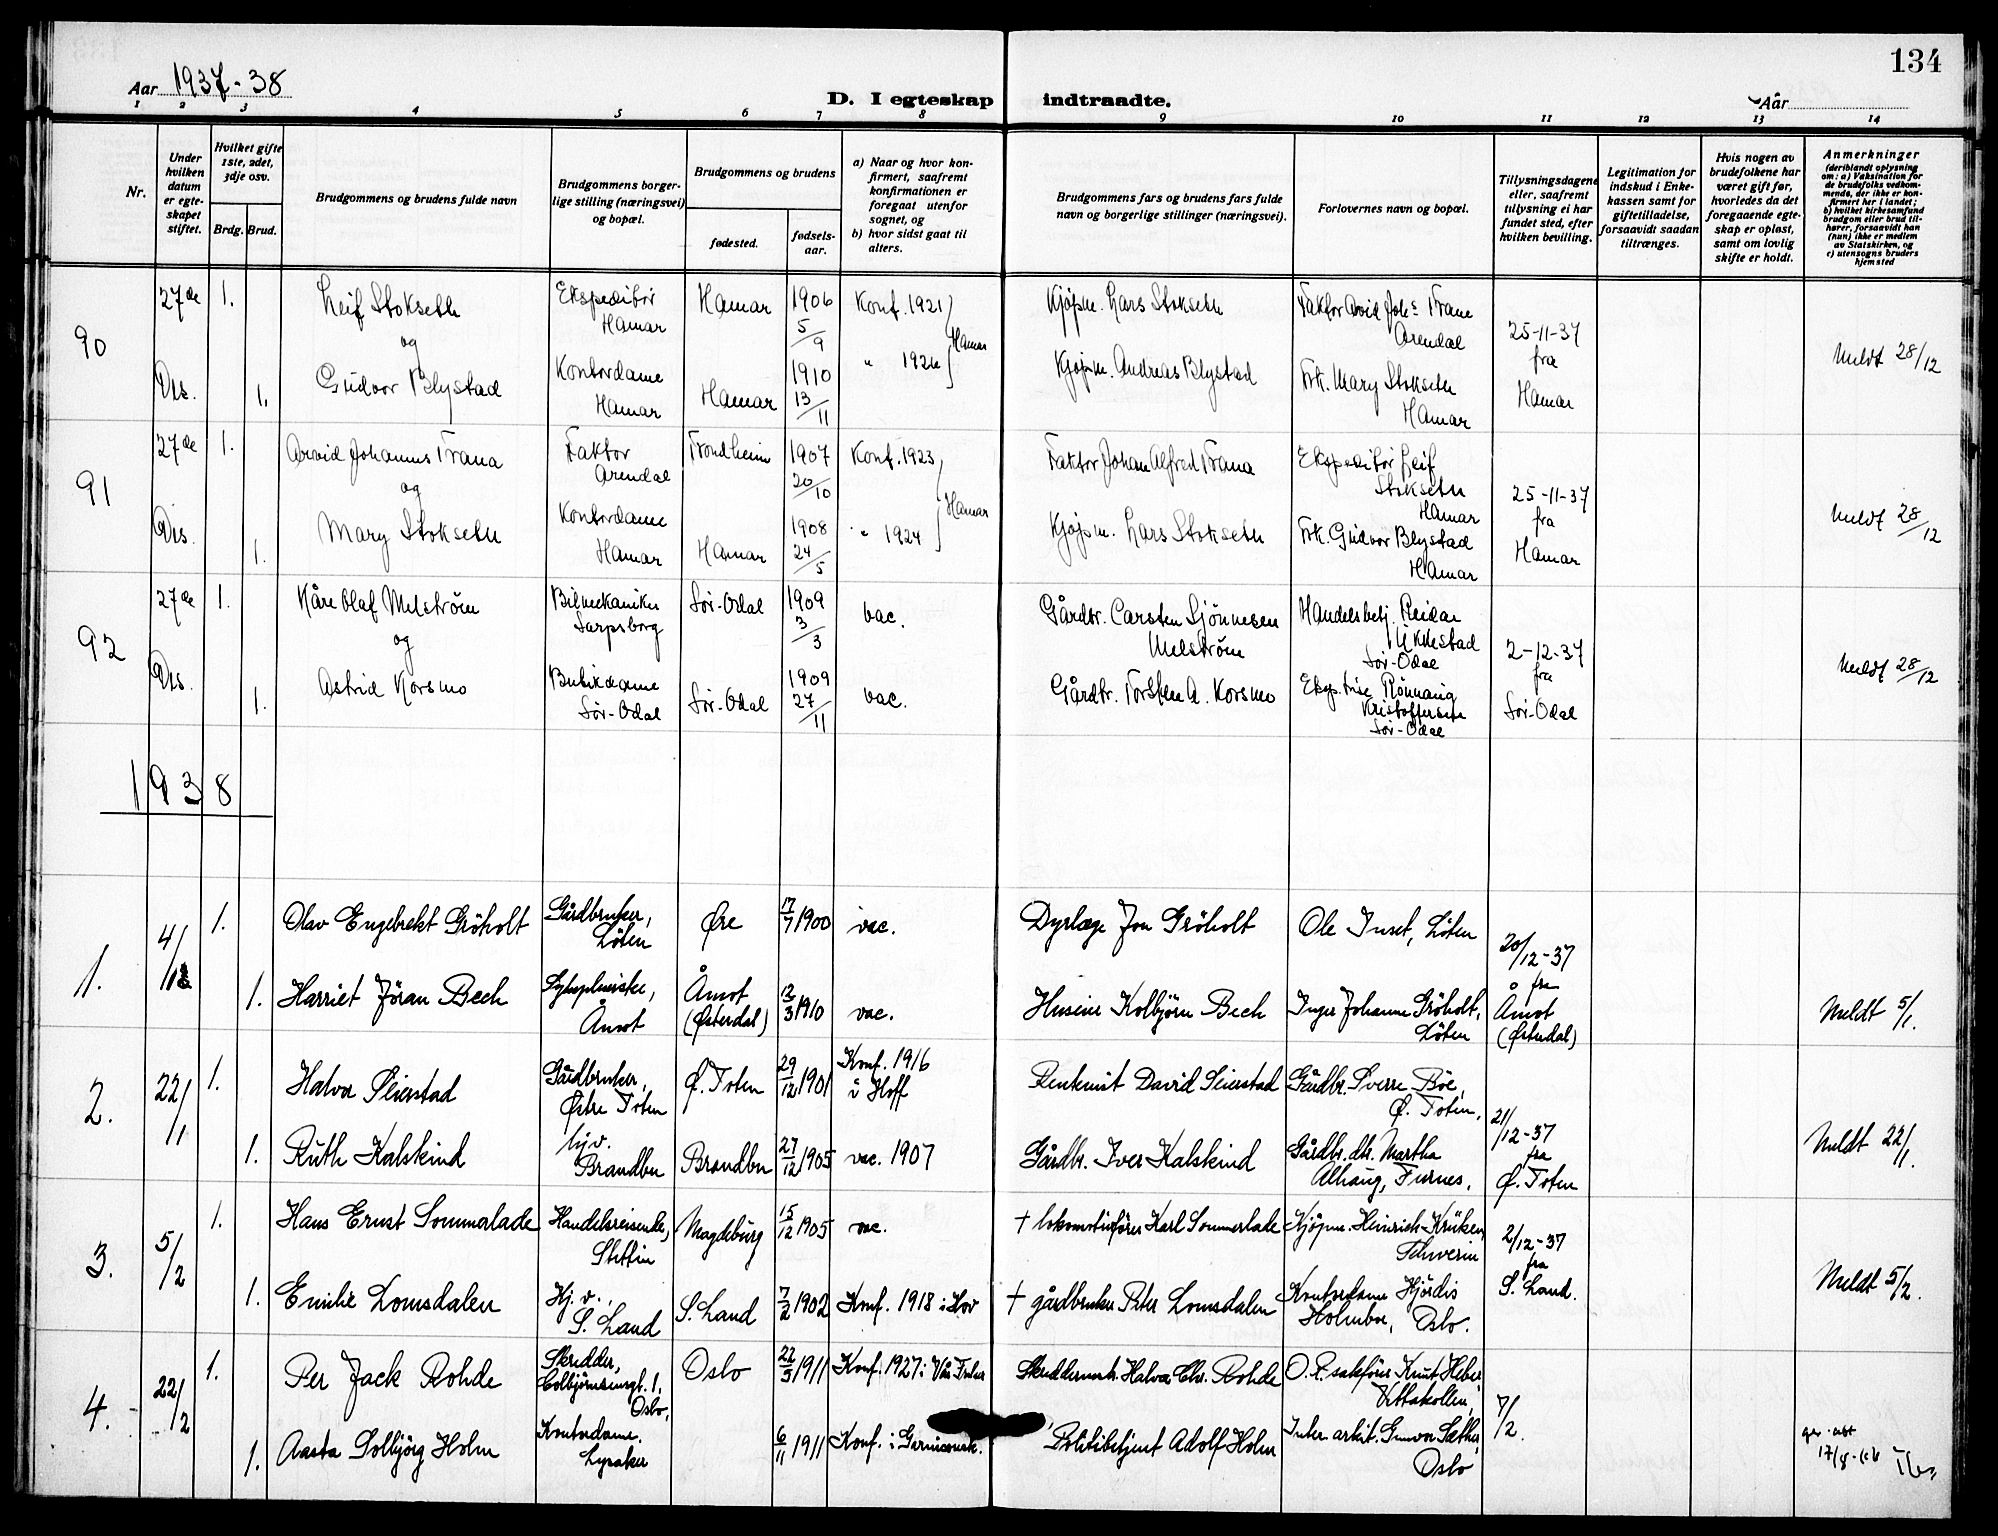 134
Aar 1937-38
D. I egteskap indtraadte.
Aar
1 2 3 4 5 6 7 8 9 10 11 12 13 14
Nr.
Under hvilken datum er egteskapet stiftet.
Hvilket gifte 1ste, 2det, 3dje osv.
Brdg. Brud.
Brudgommens og brudens fulde navn
Brudgommens borgerlige stilling (næringsvei) og bopæl.
Brudgommens og brudens
fødested.
fødselsaar.
a) Naar og hvor konfirmert, saafremt konfirmationen er foregaat utenfor sognet, og
b) hvor sidst gaat til alters.
Brudgommens fars og brudens fars fulde navn og borgerlige stillinger (næringsvei).
Forlovernes navn og bopæl.
Tillysningsdagene eller, saafremt tillysning ei har fundet sted, efter hvilken bevilling.
Legitimation for indskud i Enkekassen samt for giftetilladelse, forsaavidt saadan tiltrænges.
Hvis nogen av brudefolkene har været gift før, hvorledes da det foregaaende egteskap er opløst, samt om lovlig skifte er holdt.
Anmerkninger
(deriblandt oplysning om: a) Vaksination for de brudefolks vedkommende, der ikke er konfirmert her i landet;
b) hvilket kirkesamfund brudgom eller brud tilhører, forsaavidt han (hun) ikke er medlem av Statskirken, og
c) utensogns bruders hjemsted
90 27de Des. 1. Leif Stokseth Ekspeditör Hamar Hamar 1906 5/9 Konf. 1921 Hamar Kjøpm. Lars Stokseth Faktor Arvid Johs Trane Arendal 25-11-37 fra Hamar Meldt 28/12
og
1. Gudvor Blystad Kontordame Hamar Hamar 1910 13/11 " 1926 Kjøpm. Andreas Blystad Frk. Mary Stokseth Hamar
91 27de Des. 1. Arvid Johannes Trana Faktor Arendal Trondheim 1907 20/10 Konf. 1923 Hamar Faktor Johan Alfred Trana Ekspeditör Leif Stokseth Hamar 25-11-37 fra Hamar Meldt 28/12
og
1. Mary Stokseth Kontordame Hamar Hamar 1908 24/5 " 1924 Kjøpm. Lars Stokseth Frk. Gudvor Blystad Hamar
92 27de Des. 1. Kåre Olaf Melström Bilmekaniker Sarpsborg Sör-Odal 1909 3/3 vac. Gårdbr. Carsten Sjönnesen Melström Handelsbetj. Reidar Sör-Odal 2-12-37 fra Sör-Odal Meldt 28/12
og
1. Astrid Korsmo Butikdame Sör-Odal Sör-Odal 1909 27/11 vac. Gårdbr. Torsten A. Korsmo Eksp.trise Rönnaug Kristoffersen Sör-Odal
1938
1. 4/1 1. Olav Engebrekt Gröholt Gårdbruker, Löten Øre 17/7 1900 vac. Dyrlæge Jon Gröholt Ole Inset, Löten 20/12-37 fra Åmot (Østerdal) Meldt 5/1.
1. Harriet Jöran Bech Sykepleierske, Åmot Åmot (Østerdal) 12/3 1910 vac. Huseier Kolbjörn Bech Inger Johanne Gröholt, Löten
2. 22/1 1. Halvor Seierstad Gårdbruker, Østre Toten Ø. Toten 29/12 1901 Konf. 1916 i Hoff Rentenist David Seierstad Gårdbr. Sverre Böe, Ø. Toten. 21/12-37 fra Ø. Toten Meldt 22/1.
1. Ruth Kalskind hjv. Brandbu Brandbu 27/12 1905 vac. 1907 Gårdbr. Iver Kalskind Gårdbr. dtr. Martha Alhaug, Furnes.
3. 5/2 1. Hans Ernst Sommerlade Handelsreisende, Stettin Magdeburg 15/12 1905 vac. † lokomotivförer Karl Sommerlade Kjöpm. Heinrich Krüken, Schwerin 2/12-37 fra S. Land. Meldt 5/2.
1. Emilie Lomsdalen Hj. v., S. Land S. Land 7/2 1902 Konf. 1918 i Hov † gårdbruker Peter Lomsdalen Kontordame Hjördis Holmboe, Oslo.
4. 22/2 1. Per Jack Rohde Skredder, Colbjörnsensgt. 1. Oslo, Oslo 22/3 1911 Konf. 1927 i Vår Frelser Skreddermstr. Halvor Chr. Rohde O.R.sakförer Knut Heber, Vettakollen, 7/2.
1. Aasta Solbjörg Holm Kontordame. Lysaker 6/11 1911 Konf. i Garnisonsk. Politibetjent Adolf Holm Inter. arkit. Gunvor Sæther, Oslo